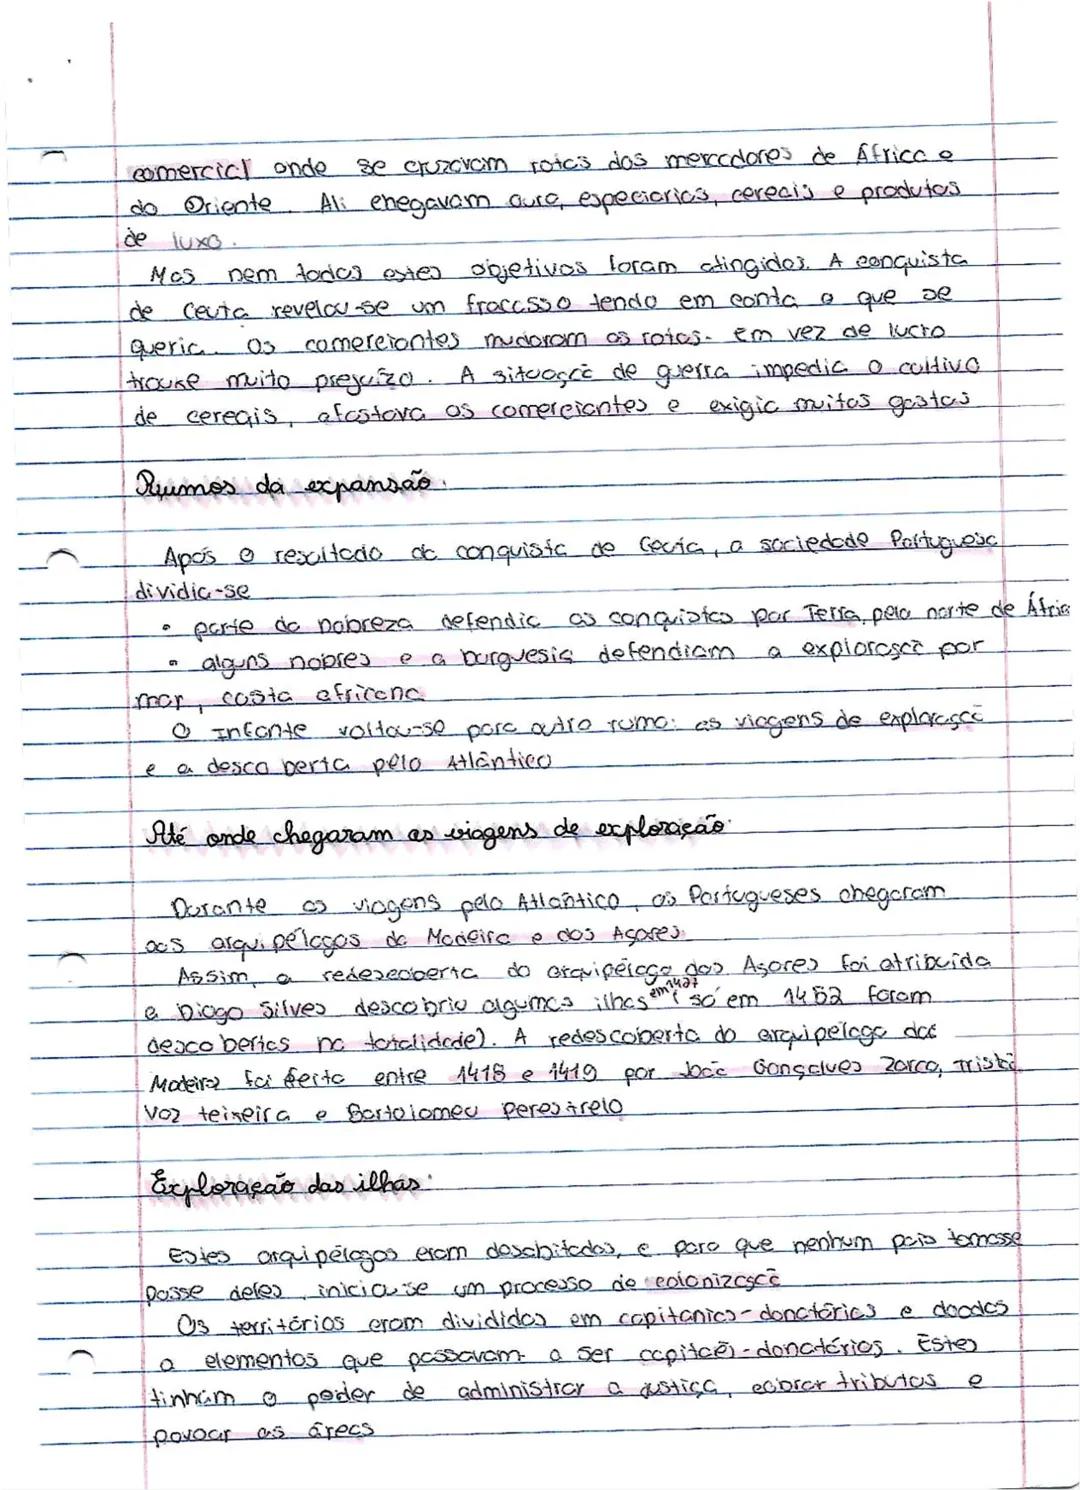 comercial onde se cruzavam rotas dos mercadores de África e
do Oriente. Ali chegavam ouro, especiarias, cereais e produtos
de luxo.
Mas nem todos estes objetivos foram atingidos. A conquista
de Ceuta revelou-se um fracasso tendo em conta o que se
queria. Os comerciantes mudaram as rotas. em vez de lucro
trouxe muito prejuízo. A situação de guerra impedia o cultivo
de cereais, afastava os comerciantes e exigia muitos gastos
Rumos da expansão.
Após o resultado da conquista de Ceuta, a sociedade Portuguesa
dividia-se
• parte da nobreza defendia as conquistas por Terra, pelo norte de Áfria
• alguns nobres e a burguesia defendiam a exploração por
mar, costa africana
O Infante voltou-se para outro rumo: as viagens de exploração
e a descoberta pelo Atlântico
Até onde chegaram as viagens de exploração.
Durante as viagens pelo Atlantico, os Portugueses chegaram
aos arquipélagos da Madeira e dos Açores.
Assim, a redescoberta do arquipélago dos Açores foi atribuida
a Diogo Silves descobriu algumas ilhas em 1427 (só em 1452 foram
descobertas na totalidade). A redescoberta do arquipelago das
Madeiras foi feita entre 1418 e 1419 por João Gonçalves Zarco, Tristã
Vaz teixeira e Bartolomeu perestrelo
Exploração das ilhas.
Estes arquipélagos eram desabitados, e para que nenhum pais tomasse
posse deles, inicia-se um processo de colonização
Os territórios eram divididos em capitanias-donatárias e doados
a elementos que passavam a ser capitães-donatários. Estes
tinham o poder de administrar a justiça, cobrar tributos e
povoar as áreas